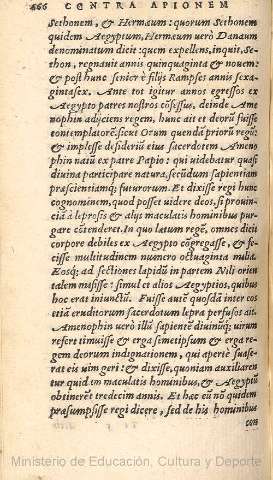 466 CONTRA APIONEM
Sethonem, & Hermæum: quorum Sethonem
quidem Aegyptum, Hermæum uerò Danaum
denominatum dicit: quem expellens, inquit, Se-
thon, regnauit annis quinquaginta & nouem:
& post hunc senior è filijs Rampses annis sexa-
gintasex. Ante tot igitur annos egressos ex
Aegypto patres nostros cõfessus, deinde Ame
nophin adijciens regem, hunc ait et deorũ fuisse
cõtemplatorẽ, sicut Orum quendã priorũ regũ:
& implesse desideriũ eius sacerdotem Ameno-
phin natũ ex patre Papio: qui uidebatur quasi
diuina participare natura, secũdum sapientiam
præscientiamq; futurorum. Et dixisse regi hunc
cognominem, quod posset uidere deos, si prouin-
ciã à leprosis & alijs maculatis hominibus pur-
gare cõtenderet. In quo latum regẽ, omnes dicit
corpore debiles ex Aegypto cõgregasse, & fe-
cisse multitudinem numero octuaginta milia.
Eosq; ad sectiones lapidũ in partem Nili orien
talem misisse: simul et alios Aegyptios, quibus
hoc erat iniunctũ. Fuisse autẽ quosdã inter eos
etiã eruditorum sacerdotum lepra perfusos ait.
Amenophin uerò illũ sapientẽ diuinũq; uirum
refert timuisse & erga semetipsum & erga re-
gem deorum indignationem, qui aperiẽ suase-
rat eis uim geri: & dixisse, quoniam auxiliaren
tur quidem maculatis hominibus, & Aegyptũ
obtinerẽt tredecim annis. Et hæc eũ nõ quidem
præsumpsisse regi dicere, sed de his hominibus
con
Ministerio de Educación, Cultura y Deporte